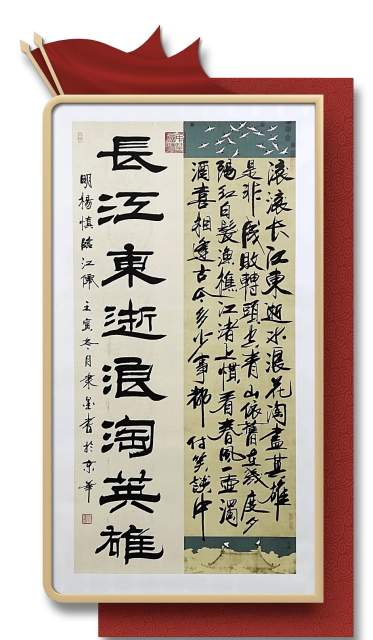 滚滚长江東逝水浪花淘盡英雄
是非成敗轉頭空青山依舊在幾度夕
陽红白髮漁樵江渚上慣看春風一壺濁
酒喜相逢古今多少事都付笑談中
長江東逝浪淘英雄
明楊慎臨江仙 壬寅冬月 書於京華